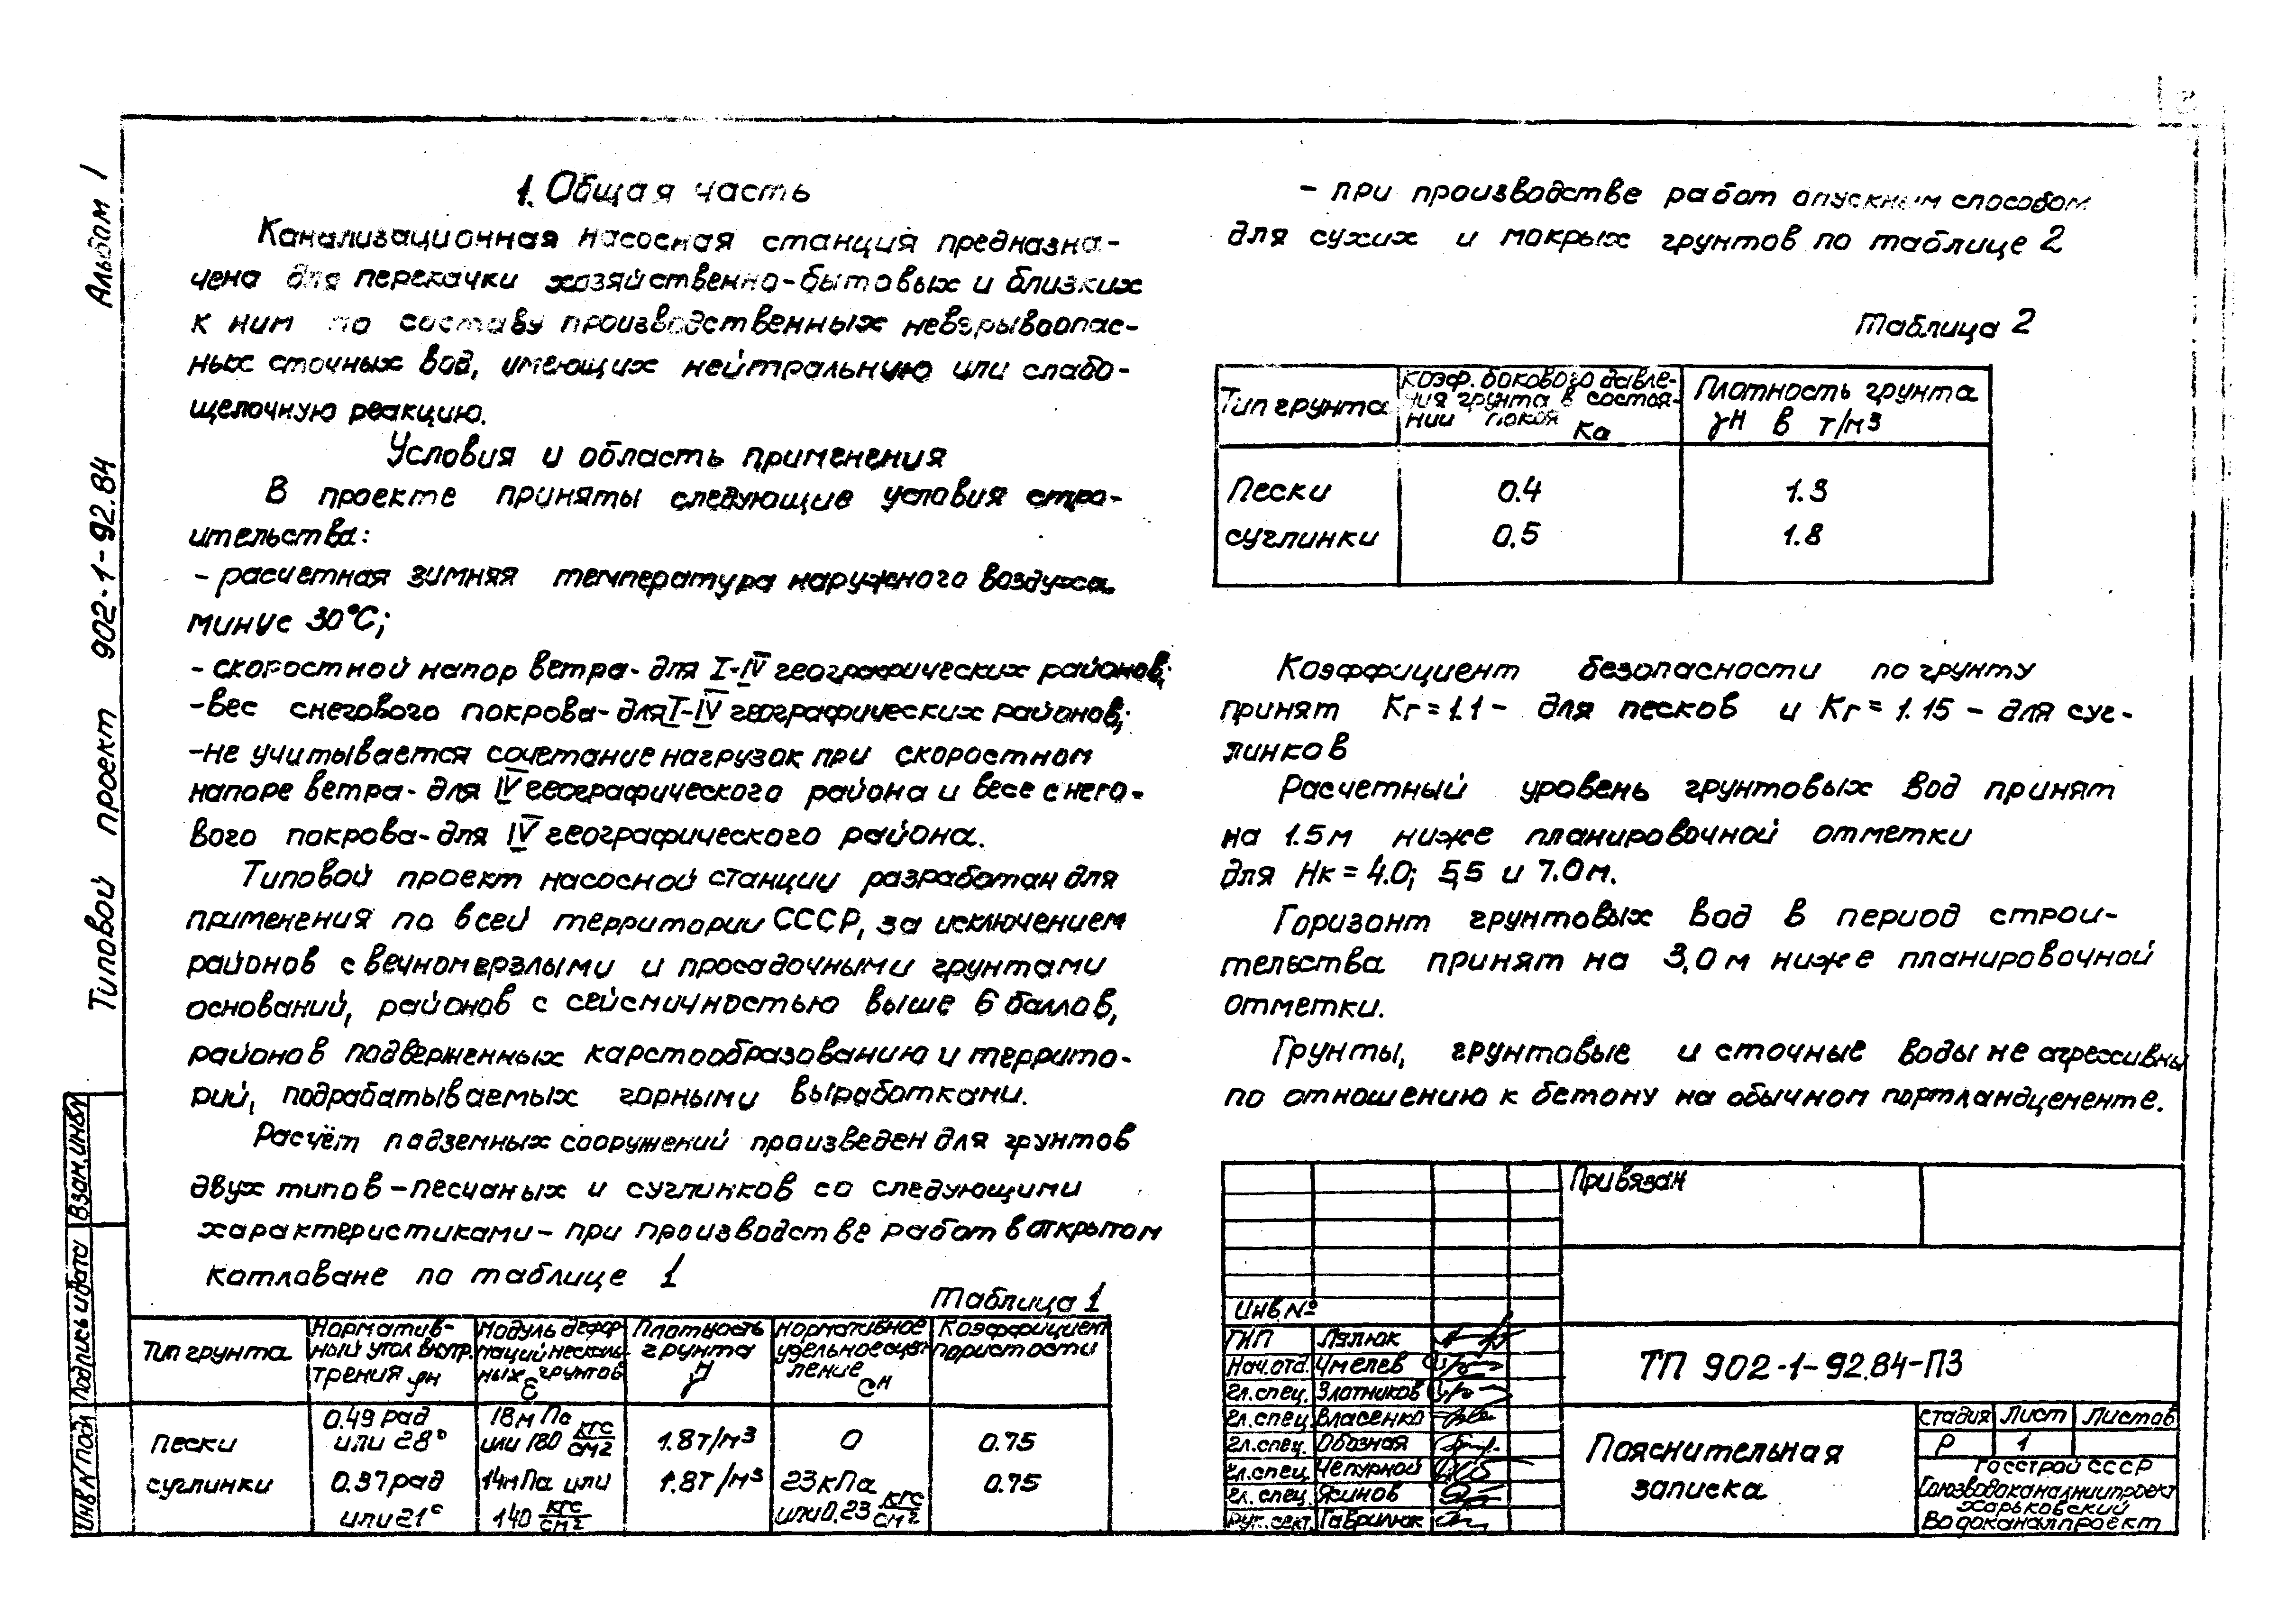 Альбом 1
Типовой проект 902-1-92.84
1. Общая часть
Канализационная насосная станция предназна-
чена для перекачки хозяйственно-бытовых и близких
к ним по составу производственных невзрывоопас-
ных сточных вод, имеющих нейтральную или слабо-
щелочную реакцию.
Условия и область применения
В проекте приняты следующие условия стро-
ительства:
- расчетная зимняя температура наружного воздуха
минус 30°С;
- скоростной напор ветра - для I-IV географических районов;
- вес снегового покрова - для I-IV географических районов;
- не учитывается сочетание нагрузок при скоростном
напоре ветра - для IV географического района и весе снего-
вого покрова - для IV географического района.
Типовой проект насосной станции разработан для
применения по всей территории СССР, за исключением
районов с вечномерзлыми и просадочными грунтами
оснований, районов с сейсмичностью выше 6 баллов,
районов подверженных карстообразованию и террито-
рий, подрабатываемых горными выработками.
Расчёт подземных сооружений произведен для грунтов
двух типов - песчаных и суглинков со следующими
характеристиками - при производстве работ в открытом
котловане по таблице 1
Таблица 1
Тип грунта | Норматив-ный угол внутр. трения φн | Модуль дефор-маций несколь-ных грунтов E | Плотность грунта γн | Нормативное удельное сцеп-ление Сн | Коэффициент пористости
пески | 0.49 рад или 28° | 18 мПа или 180 кгс/см2 | 1.8т/м3 | 0 | 0.75
суглинки | 0.37 рад или 21° | 14мПа или 140 кгс/см2 | 1.8т/м3 | 23кПа или 0.23 кгс/см2 | 0.75
- при производстве работ опускным способом
для сухих и мокрых грунтов по таблице 2
Таблица 2
Тип грунта | Коэф. бокового давле-ния грунта в состоя-нии покоя Ка | Плотность грунта γн в т/м3
Пески | 0.4 | 1.3
суглинки | 0.5 | 1.8
Коэффициент безопасности по грунту
принят Кг = 1.1 - для песков и Кг = 1.15 - для суг-
линков
Расчетный уровень грунтовых вод принят
на 1.5 м ниже планировочной отметки
для Нк = 4.0; 5,5 и 7.0 м.
Горизонт грунтовых вод в период строи-
тельства принят на 3,0 м ниже планировочной
отметки.
Грунты, грунтовые и сточные воды не агрессивны
по отношению к бетону на обычном портландцементе.
Привязан
Инв.№
ГИП Лялюк
Нач.отд. Чмелев
Гл.спец. Злотников
Гл.спец. Власенко
Гл.спец. Обозная
Гл.спец. Чепурной
Гл.спец. Ясинов
Рук.сект. Гаврилюк
ТП 902-1-92.84-ПЗ
Пояснительная
записка
Стадия Лист Листов
Р 1
Госстрой СССР
Союзводоканалниипроект
Харьковский
Водоканалпроект
Взам.инв.№
Подпись и дата
Инв.№ подл